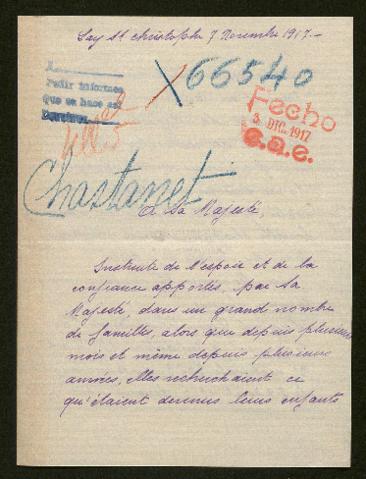 Lay St Christophe 7 Novembre 1917.-
X
Pedir informes
que se hace así
66540
Fecho
3 DIC. 1917
C.a.e.
Chastanet
A Sa Majesté,
Instruite de l'espoir et de la
confiance apportés, par Sa
Majesté, dans un grand nombre
de familles, alors que depuis plusieurs
mois et même depuis plusieurs
années, elles recherchaient ce
qu'étaient devenus leurs enfants